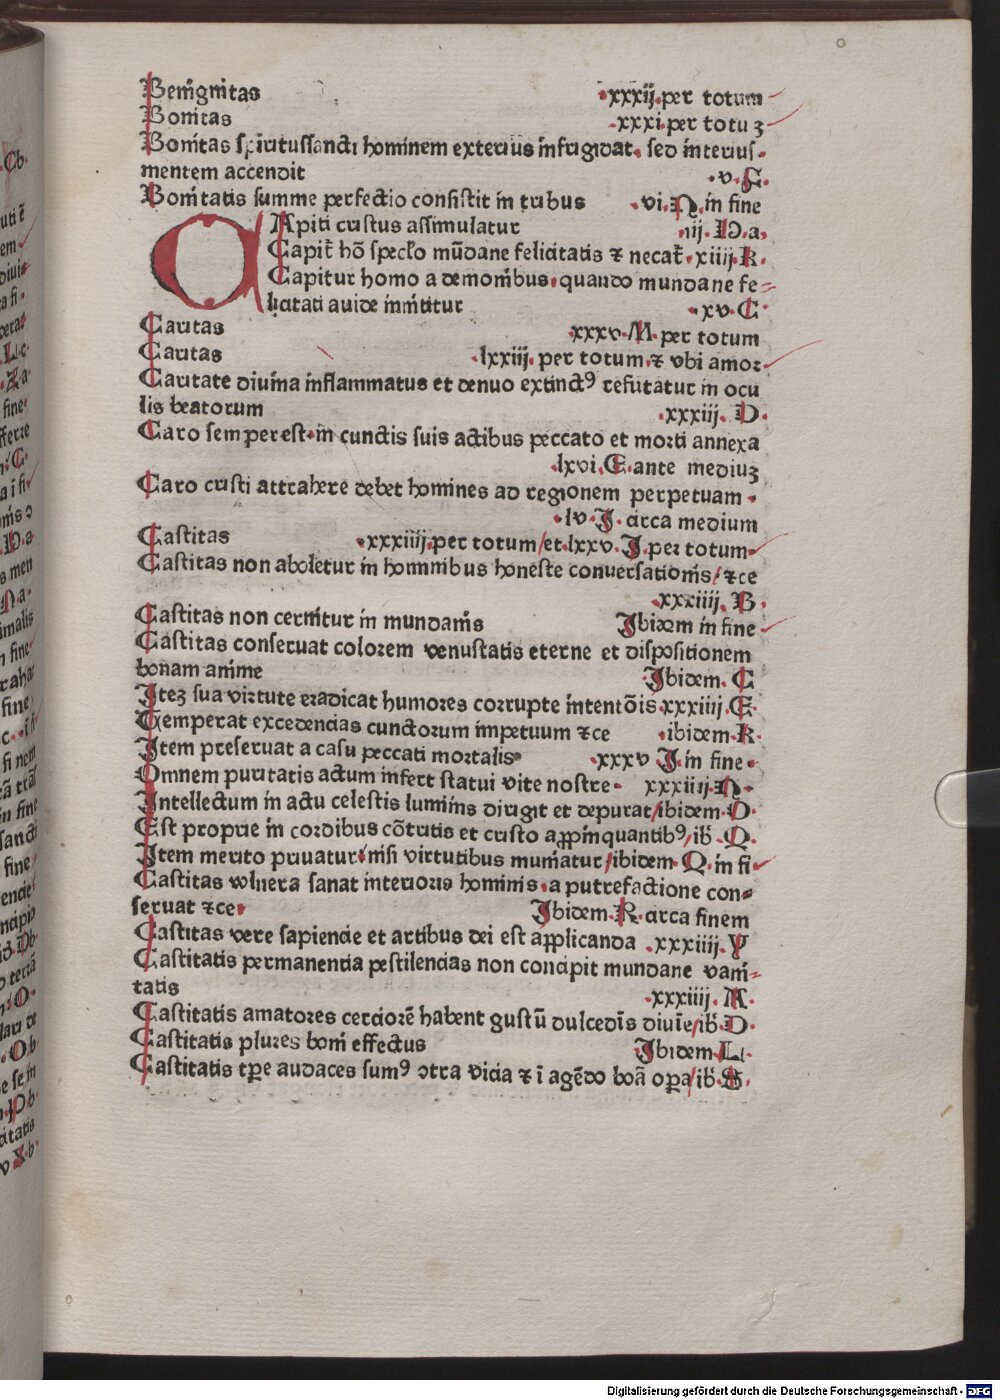 Benignitas .xxxij.per totum
Bonitas .xxxi.per totuꝫ
Bonitas spiritussancti hominem exterius infrigidat. sed interius.
mentem accendit .v.E.
Bonitatis summe perfectio consistit in tribus .vi.N.in fine
CApiti cristus assimulatur .iij.D.a.
Capit̃ hõ speclo mũdane felicitatis ⁊ necat̃.xiiij.K.
Capitur homo a demonibus.quando mundane fe-
licitati auide innititur .xv.C.
Caritas .xxxv.M.per totum
Caritas .lxxiij.per totum.⁊ vbi amor.
Caritate diuina inflammatus et denuo extinctꝰ refutatur in ocu
lis beatorum .xxxiij.D.
Caro semper est.in cunctis suis actibus peccato et morti annexa
.lxvi.E.ante mediuꝫ
Caro cristi attrahere debet homines ad regionem perpetuam.
.lv.J.circa medium
Castitas .xxxiiij.per totum/et.lxxv.J.per totum.
Castitas non aboletur in hominibus honeste conuersationis/⁊ce
.xxxiiij.B.
Castitas non cernitur in mundanis Ibidem in fine
Castitas conseruat colorem venustatis eterne et dispositionem
bonam anime Ibidem.C
Iteꝫ sua virtute eradicat humores corrupte intentõis.xxxiiij.E.
Temperat excedencias cunctorum impetuum ⁊ce .ibidem.K.
Item preseruat a casu peccati mortalis .xxxv.J.in fine.
Omnem puritatis actum infert statui vite nostre. xxxiiij.N.
Intellectum in actu celestis luminis dirigit et depurat/ibidem.O.
Est proprie in cordibus cõtritis et cristo appinquantibꝰ/ib̃.Q.
Item merito priuatur.nisi virtutibus muniatur/ibidem.Q.in fi.
Castitas vulnera sanat interioris hominis.a putrefactione con-
seruat ⁊ce. Ibidem.R.circa finem
Castitas vere sapiencie et artibus dei est applicanda .xxxiiij.Y
Castitatis permanentia pestilencias non concipit mundane vani-
tatis .xxxiiij.A.
Castitatis amatores cerciorẽ habent gustũ dulcedĩs diuiẽ/ib̃.D.
Castitatis plures boni effectus Ibidem.L.
Castitatis tꝑe audaces sumꝰ ↄtra vicia ⁊ ĩ agẽdo boã oꝑa/ib̃.S.
Digitalisierung gefördert durch die Deutsche Forschungsgemeinschaft - DFG